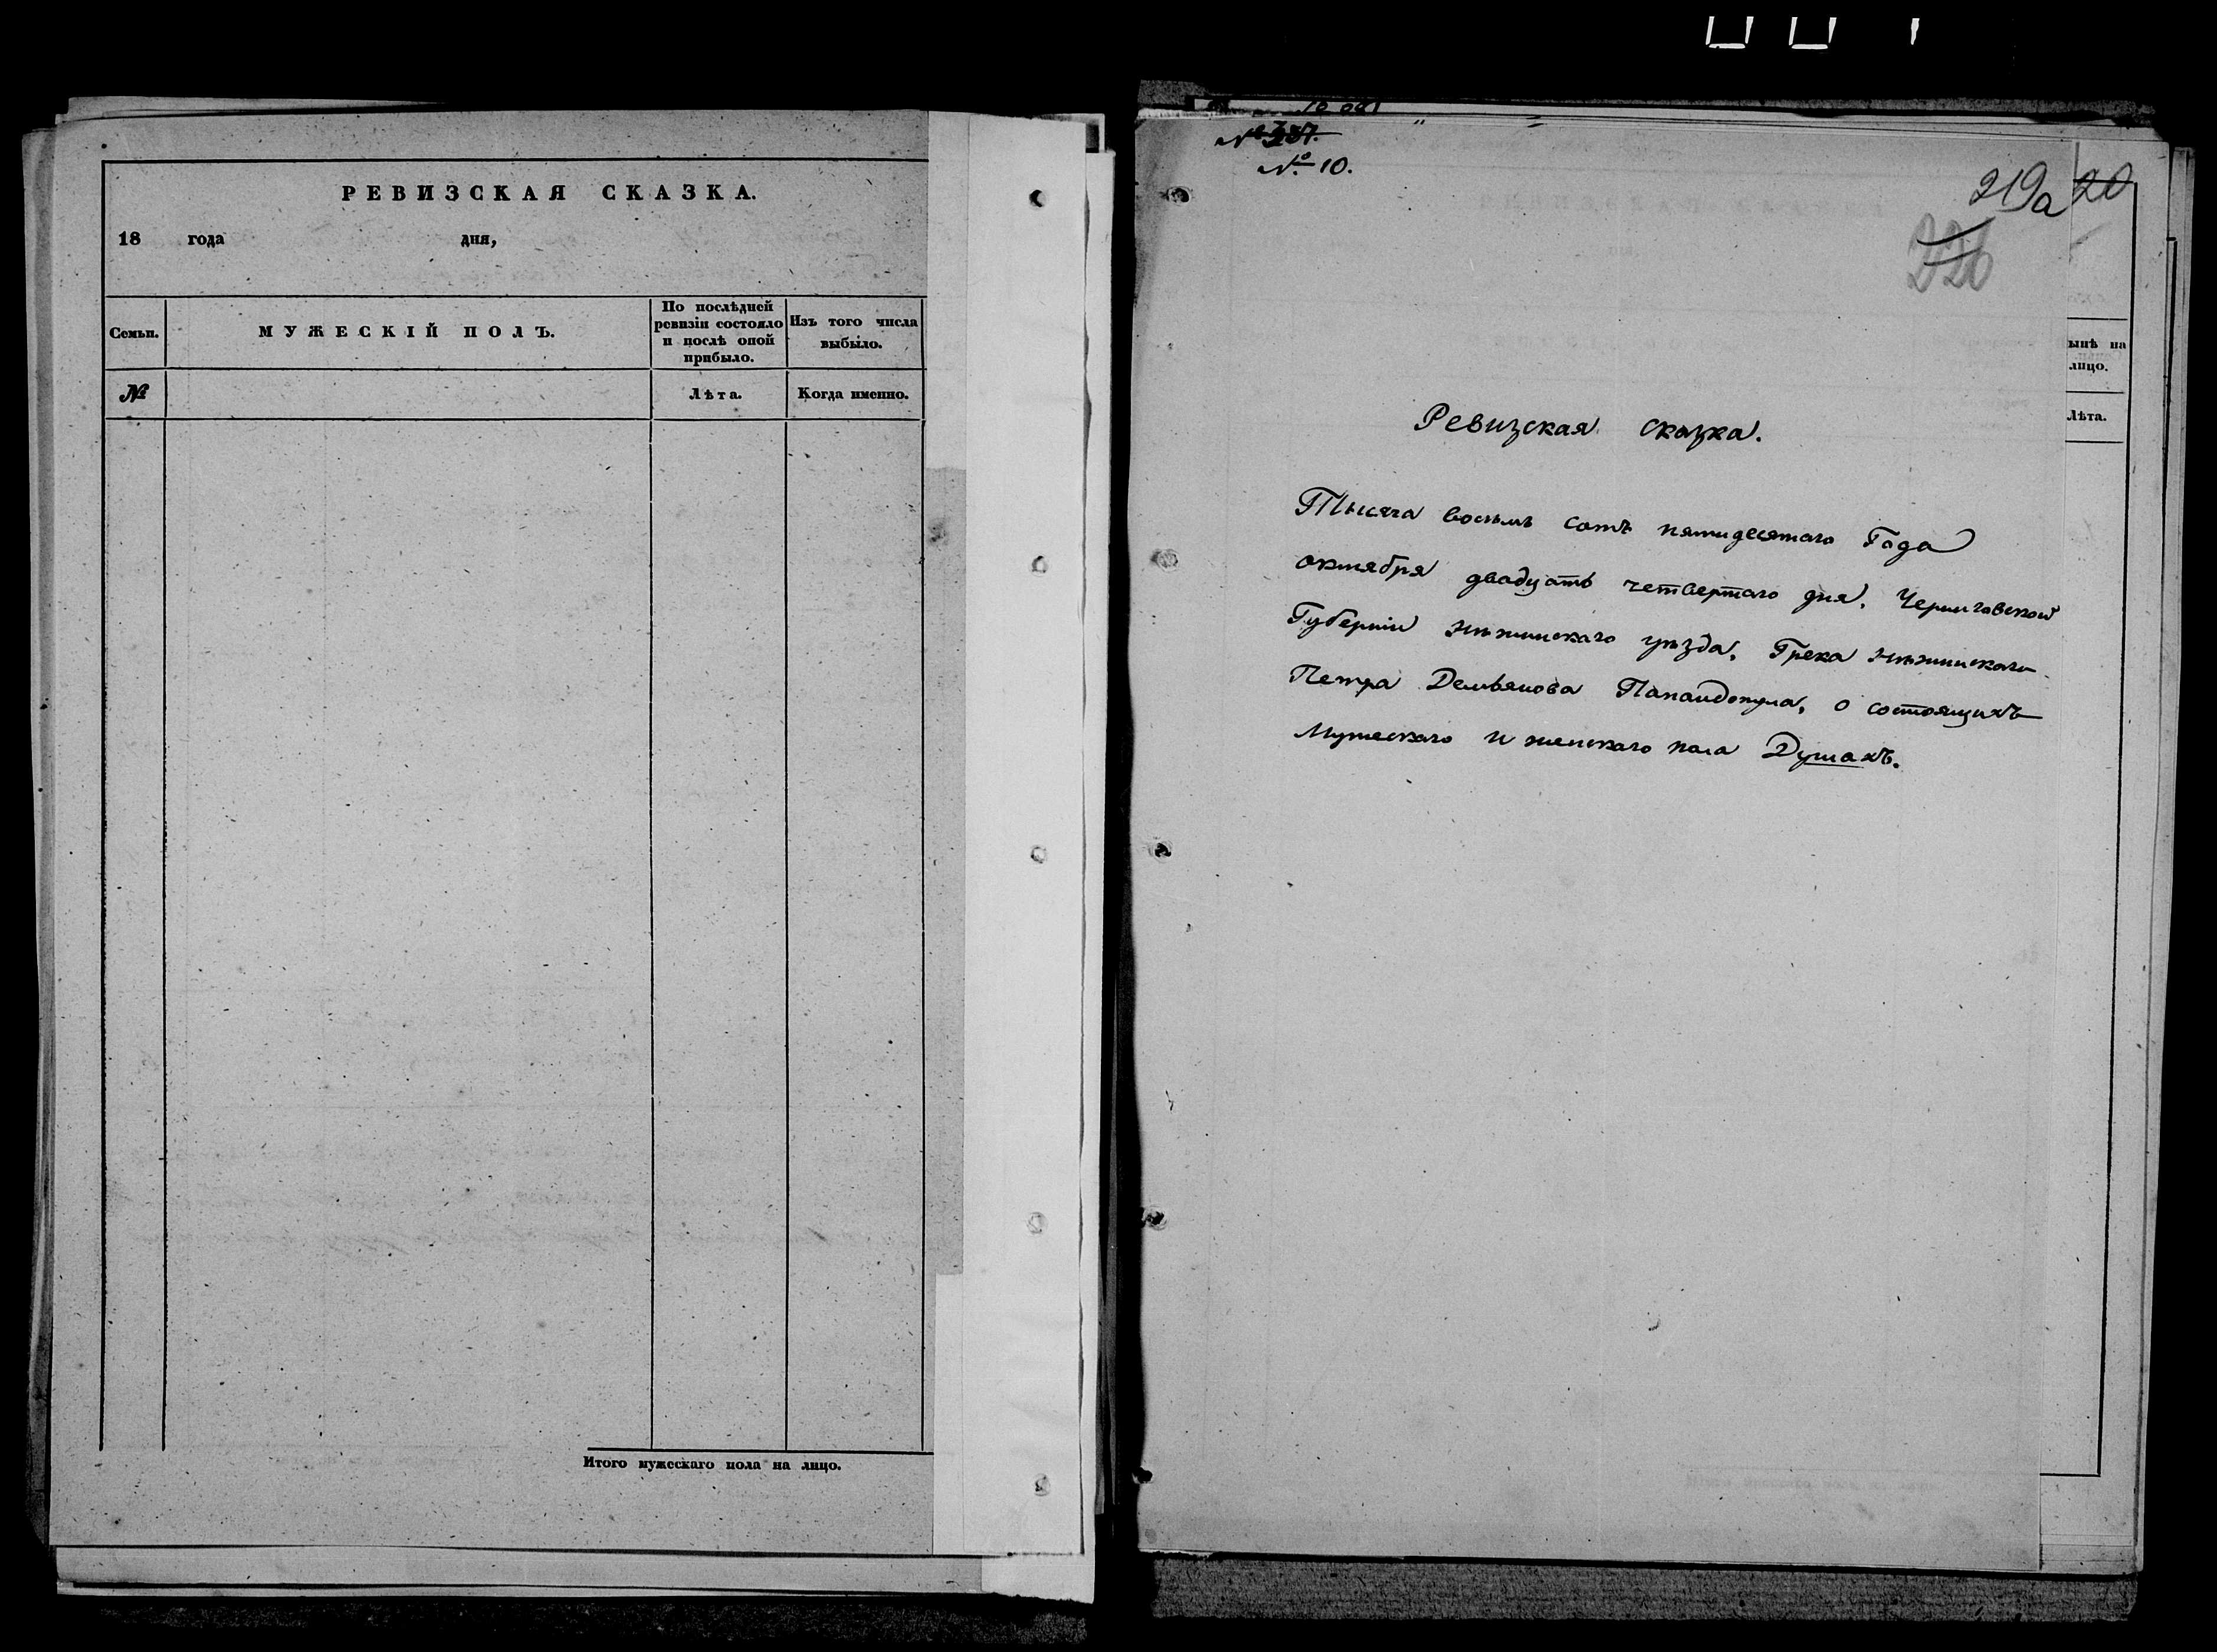 РЕВИЗСКАЯ СКАЗКА.
18 года дня,
Семьи.
МУЖЕСКІЙ ПОЛЪ.
По послѣдней
ревизіи состояло
и послѣ оной
прибыло.
Изъ того числа
выбыло.
№
Лѣта.
Когда именно.
Итого мужескаго пола на лицо.
№ 10.
219а 20
226
ынѣ на
лицо.
Лѣта.
Ревизская сказка.
Тысяча восемь сотъ пятидесятаго Года
октября двадцать четвертаго дня, Черниговской
Губерніи Нѣжинскаго уѣзда, Грека Нѣжинскаго
Петра Демьянова Папандопула, о состоящихъ
Мужескаго и женскаго пола Душахъ.